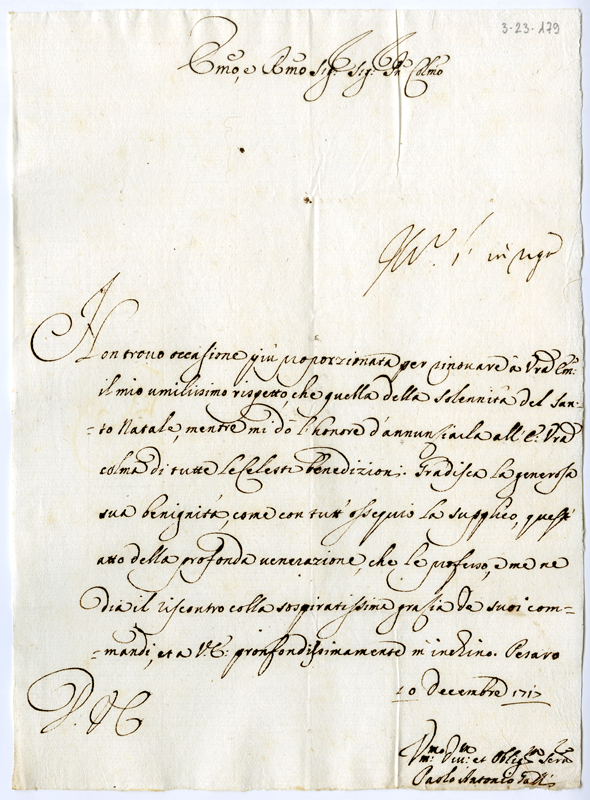 3-23-179
Emo, e Rmo Sig: Sig: Pn Colmo
Non trouo occasione più proporzionata per rinouare à Vra Em:
il mio umilissimo rispetto, che quella della Solennità del San-
-to Natale, mentre mi dò l'honore d'annunsiarla all'E: Vra
colma di tutte le Celesti benedizioni. Gradisca la generosa
sua benignità, come con tutt'ossequio la supplico, quest'
atto della profonda venerazione, che le professo, e me ne
dia il riscontro colla sospiratissima grasia de suoi com-
-mandi, et a V.E: pronfondissimamente m'inchino. Pesaro
10 Decembre 1717
Vmo Diu: et Oblig
Paolo Antonio